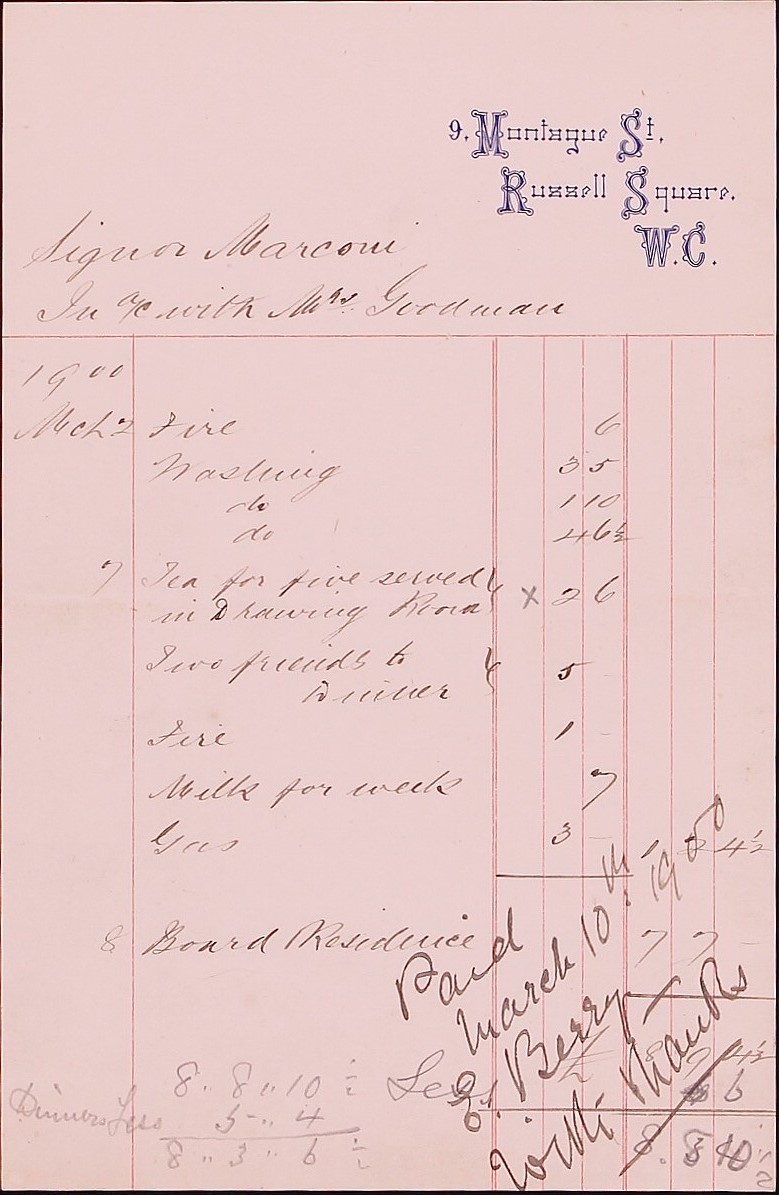 9. Montague St.
Russell Square.
W.C.
Signor Marconi
In a/c with Mrs. Goodman
1900
Mch 2 Fire 6
Washing 3 5
do 1 10
do 4 6½
7 Tea for five served
in Drawing Room x 2 6
Two friends to
Dinner 5
Fire 1 -
Milk for week 7
Gas 3 - 1 2 4½
8 Board Residence 7 7 -
Paid
March 10th 1900
E. Berry
With Thanks
8 9 4½
Less 6
8. 8 10½
8. 8 " 10½
Dinners Less 5 " 4
8 " 3 " 6½